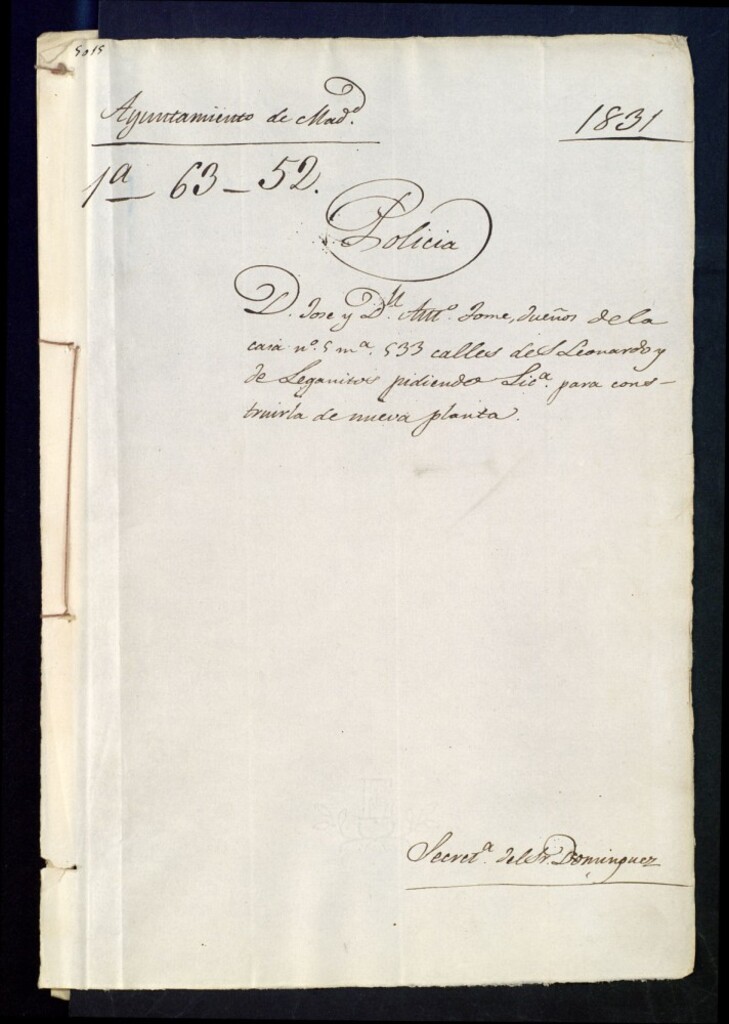 5015
Ayuntamiento de Mad.d
1831
1a 63-52.
Policia
D. Jose y D.n Ant.o Jome, dueños de la
casa n.o 5 m.a 533 calles de S Leonardo y
de Leganitos pidiendo Lic.a para cons-
truirla de nueva planta.
Secret.a del Sr. Dominguez